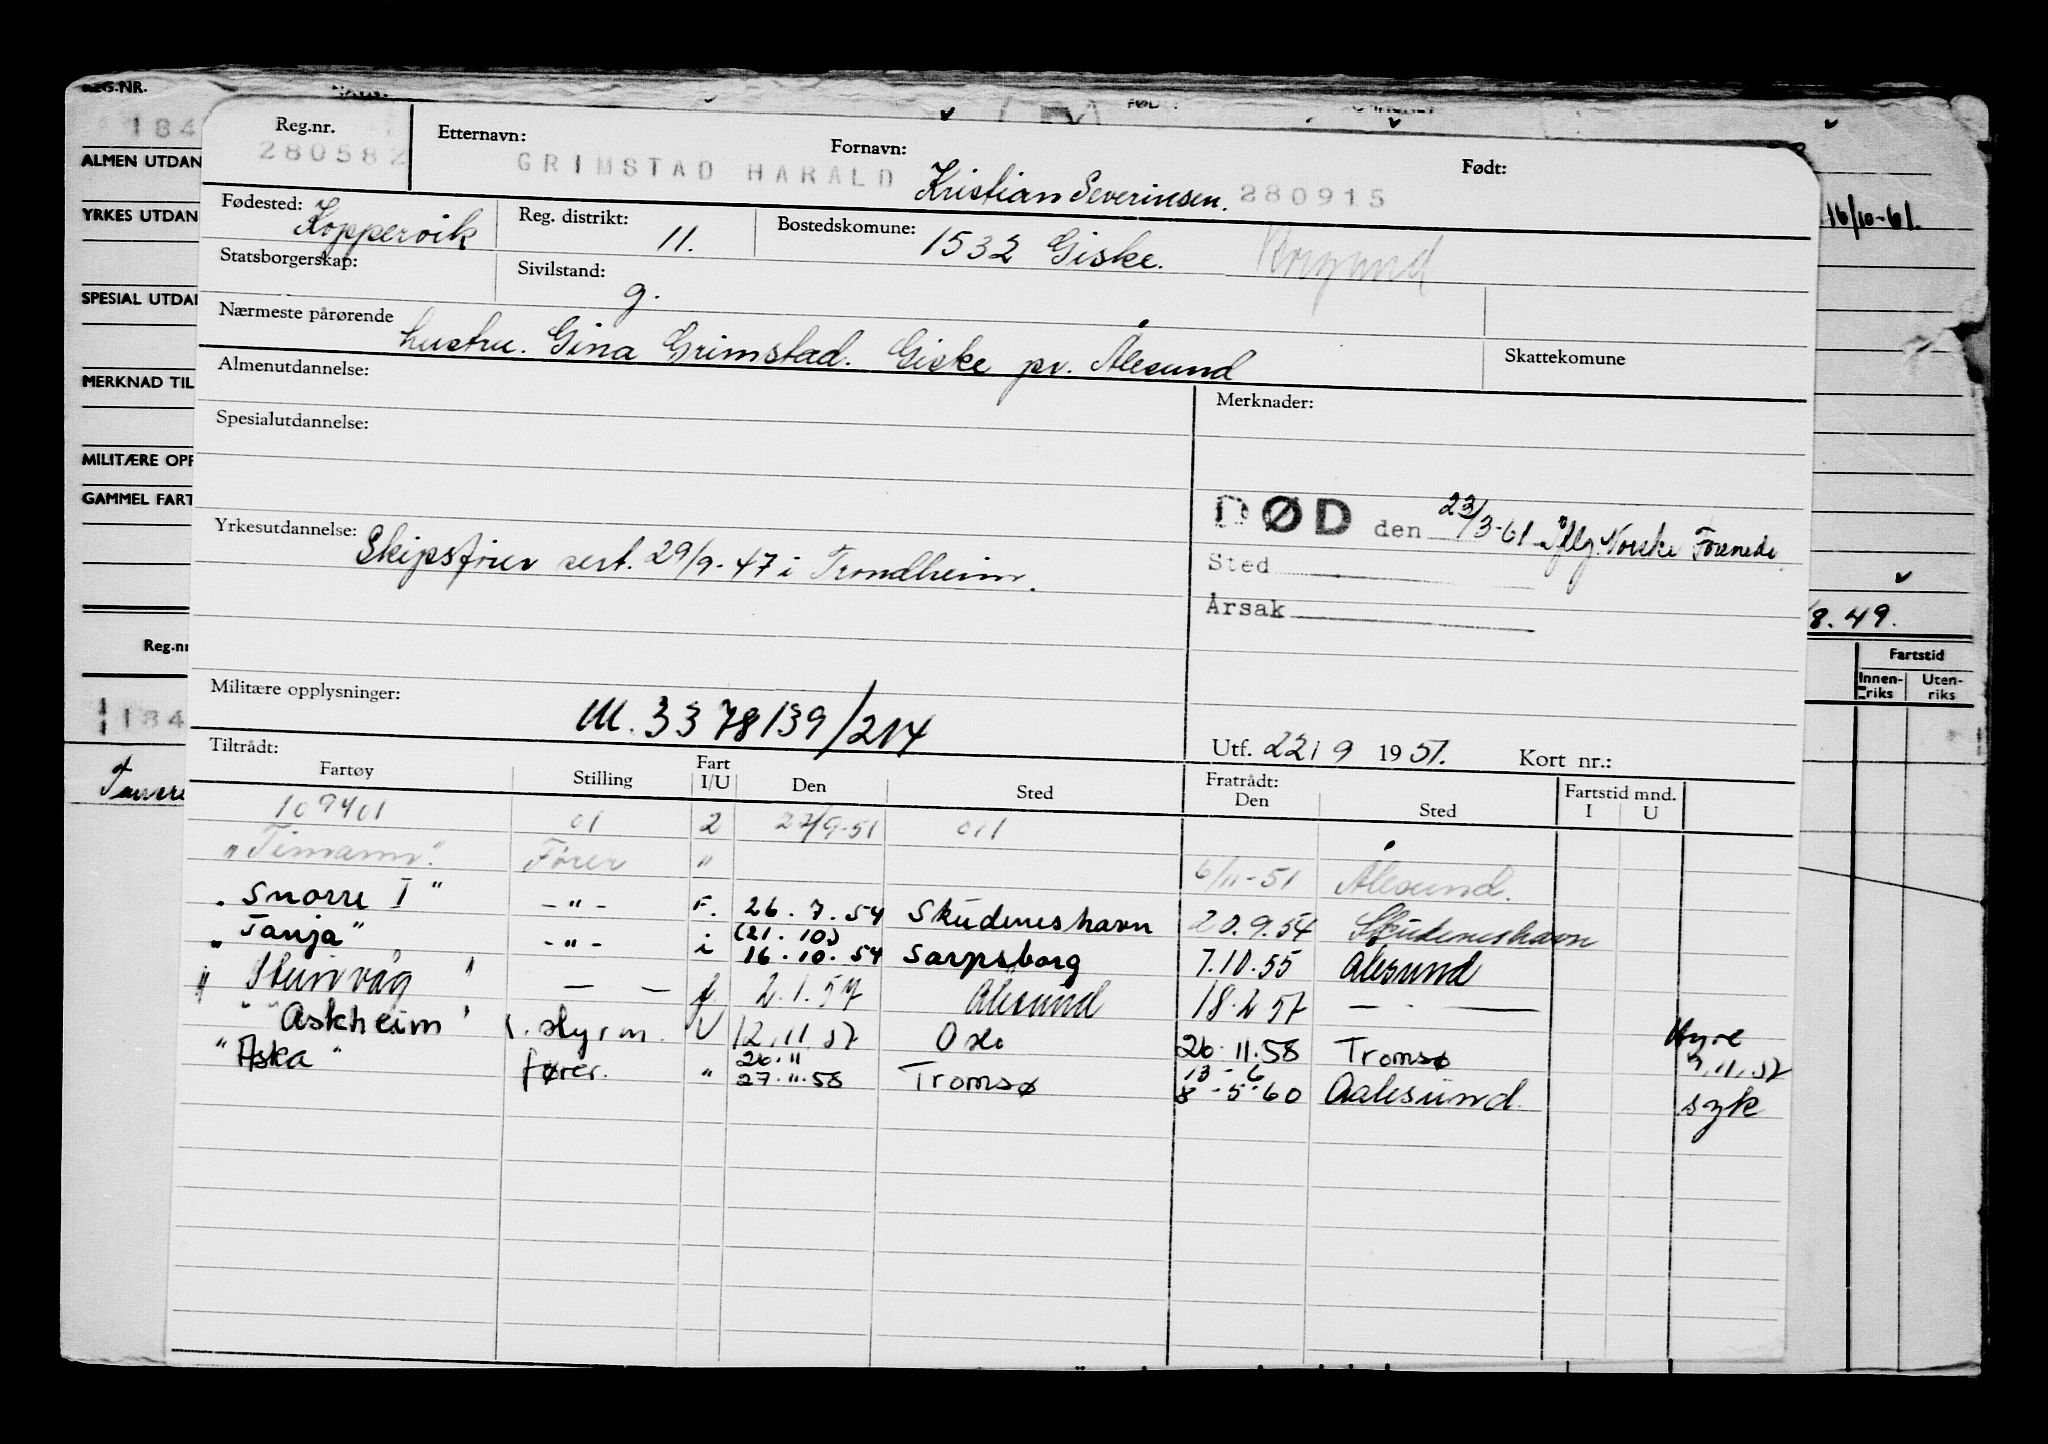 REG.NR.
184
ALMEN UTDAN
YRKES UTDAN
SPESIAL UTDAN
MERKNAD TIL
MILITÆRE OPP
GAMMEL FART
Reg.nr
184
16/10-61.
/8.49.
Fartstid
Innen-riks Uten-riks
Reg.nr. Etternavn: Fornavn: Født:
280582 GRIMSTAD HARALD Kristian Severinsen. 280915
Fødested: Koppervik Reg. distrikt: 11. Bostedskomune: 1532 Giske. Borgund
Statsborgerskap: Sivilstand: g.
Nærmeste pårørende hustru. Gina Grimstad. Giske pr. Ålesund Skattekomune
Almenutdannelse: Merknader:
Spesialutdannelse:
DØD den 23/3-61 Iflg. Norske Forenede.
Sted
Årsak
Yrkesutdannelse: Skipsfører sert. 29/9-47 i Trondheim.
Militære opplysninger: M. 3378139/214
Utf. 22/9 1951. Kort nr.:
Tiltrådt: Fratrådt: Fartstid mnd.
Fartøy Stilling Fart I/U Den Sted Den Sted I U
109401 01 2 22/9-51 011
"Timann". Fører " 6/11-51 Ålesund.
"Snorre I" -"- F. 26.7.54 Skudeneshavn 20.9.54 Skudeneshavn
"Tanja" -"- i (21.10.) 16.10.54 Sarpsborg 7.10.55 Ålesund
"Steinvåg" — — f 2.1.57 Ålesund 18.2.57 — " —
"Askheim" 1. styrm. U 12.11.57 Oslo 26.11.58 Tromsø Hyre 9.11.57
"Aska" fører. " 26.11 27.11.58 Tromsø 13-6 8-5-60 Aalesund. syk